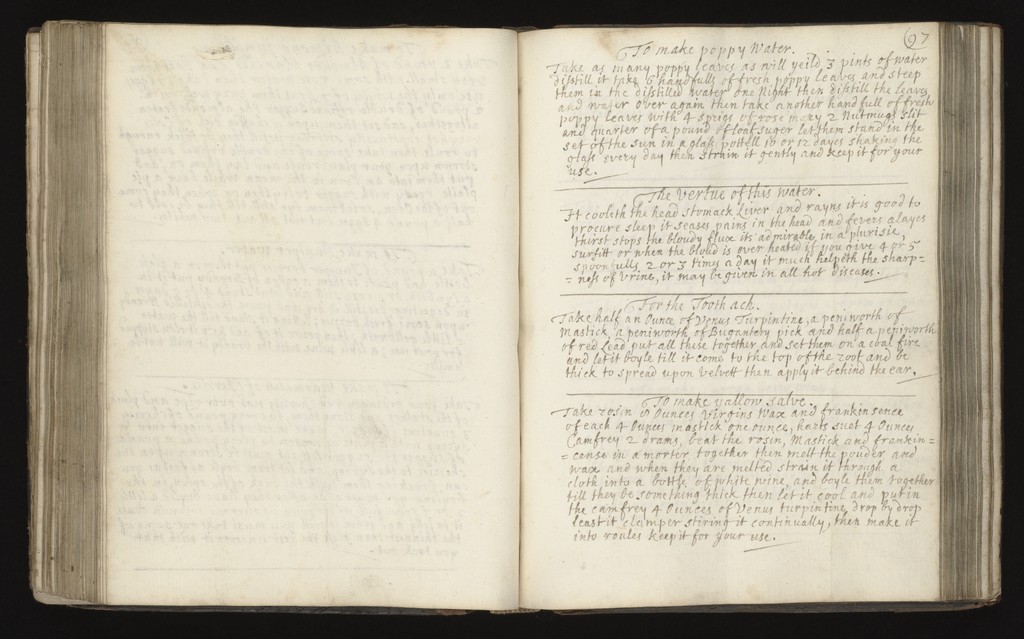 97
To make poppy Water.
Take as many poppy leaves as will yeild 3 pints of water
distill it take 6 handfulls of fresh poppy leaves and steep
them in the distilled water one Night then distill the leaves
and water over again then take another handfull of fresh
poppy leaves with 4 sprigs of rose mary 2 Nutmugs slit
and quarter of a pound of loaf suger let them stand in the
set of the sun in a glass pottell 10 or 12 dayes shaking the
glass every day then strain it gently and keep it for your
use.
The vertue of this water.
It cooleth the head stomack Liver and rayns it is good to
procure sleep it seases pains in the head and fevers alayes
thirst stops the bloudy fluxe its admirable in a plurisie,
surfitt or when the bloud is over heated if you give 4 or 5
spoonfulls 2 or 3 times a day it much helpeth the sharp=
=ness of Vrine, it may be given in all hot diseases.
For the Tooth ach.
Take half an Ounce of Venus Turpintine, a peniworth of
Mastick a peniworth of pick and half a peniworth
of red Lead put all these together and set them on a coal fire
and let it boyle till it come to the top of the and be
thick to spread upon velvett then apply it behind the ear.
To make yallow salve.
Take rosin Ounces Virgins Wax and frankinsence
of each 4 Ounces mastick one ounce, harts suet 4 Ounces
Camfrey 2 drams, beat the rosin, Mastick and frankin=
=cense in a morter together then melt the pouder and
wax and when they are melted strain it through a
cloth into a bottle of white wine, and boyle them together
till they be something thick then let it cool and put in
the camfrey 4 Ounces of Venus turpintine, drop by drop
least it clumper stiring it continually, then make it
into roules keep it for your use.